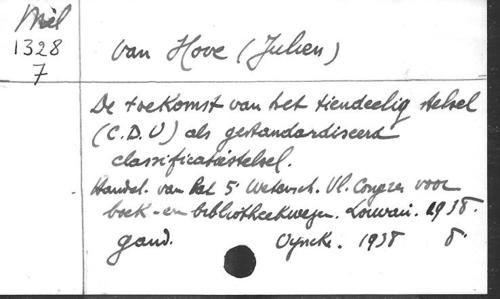 Mél
1328
7
Van Hove (Julien)
De toekomst van het tiendeelig stelsel
(C.D.U) als gestandardiseerd
classificatiestelsel.
Handel. van het 5e Wetensch. Vl. Congres voor
boek- en bibliotheekwezen. Louvain. 1938.
Gand. Vyncke. 1938 8°.